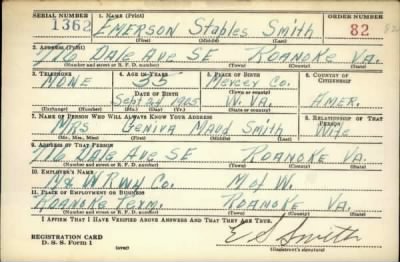 SERIAL NUMBER 1. NAME (Print) ORDER NUMBER
1362 EMERSON Stables Smith 82
(First) (Middle) (Last)
2. ADDRESS (Print)
Dale Ave SE ROANOKE VA.
(Number and street or R. F. D. number) (Town) (County) (State)
3. TELEPHONE 4. AGE IN YEARS 5. PLACE OF BIRTH 6. COUNTRY OF CITIZENSHIP
NONE 35 Mercer Co.
DATE OF BIRTH (Town or county)
Sept 24 1905 W. VA. AMER.
(Exchange) (Number) (Mo.) (Day) (Yr.) (State or country)
7. NAME OF PERSON WHO WILL ALWAYS KNOW YOUR ADDRESS 8. RELATIONSHIP OF THAT PERSON
MRS Geniva Maud Smith Wife
(Mr., Mrs., Miss) (First) (Middle) (Last)
9. ADDRESS OF THAT PERSON
Dale Ave SE ROANOKE VA.
(Number and street or R. F. D. number) (Town) (County) (State)
10. EMPLOYER'S NAME
N & W RWY Co. M of W.
11. PLACE OF EMPLOYMENT OR BUSINESS
Roanoke Term. ROANOKE VA.
(Number and street or R. F. D. number) (Town) (County) (State)
I AFFIRM THAT I HAVE VERIFIED ABOVE ANSWERS AND THAT THEY ARE TRUE.
REGISTRATION CARD E S Smith
D. S. S. Form 1 (over) (Registrant's signature)